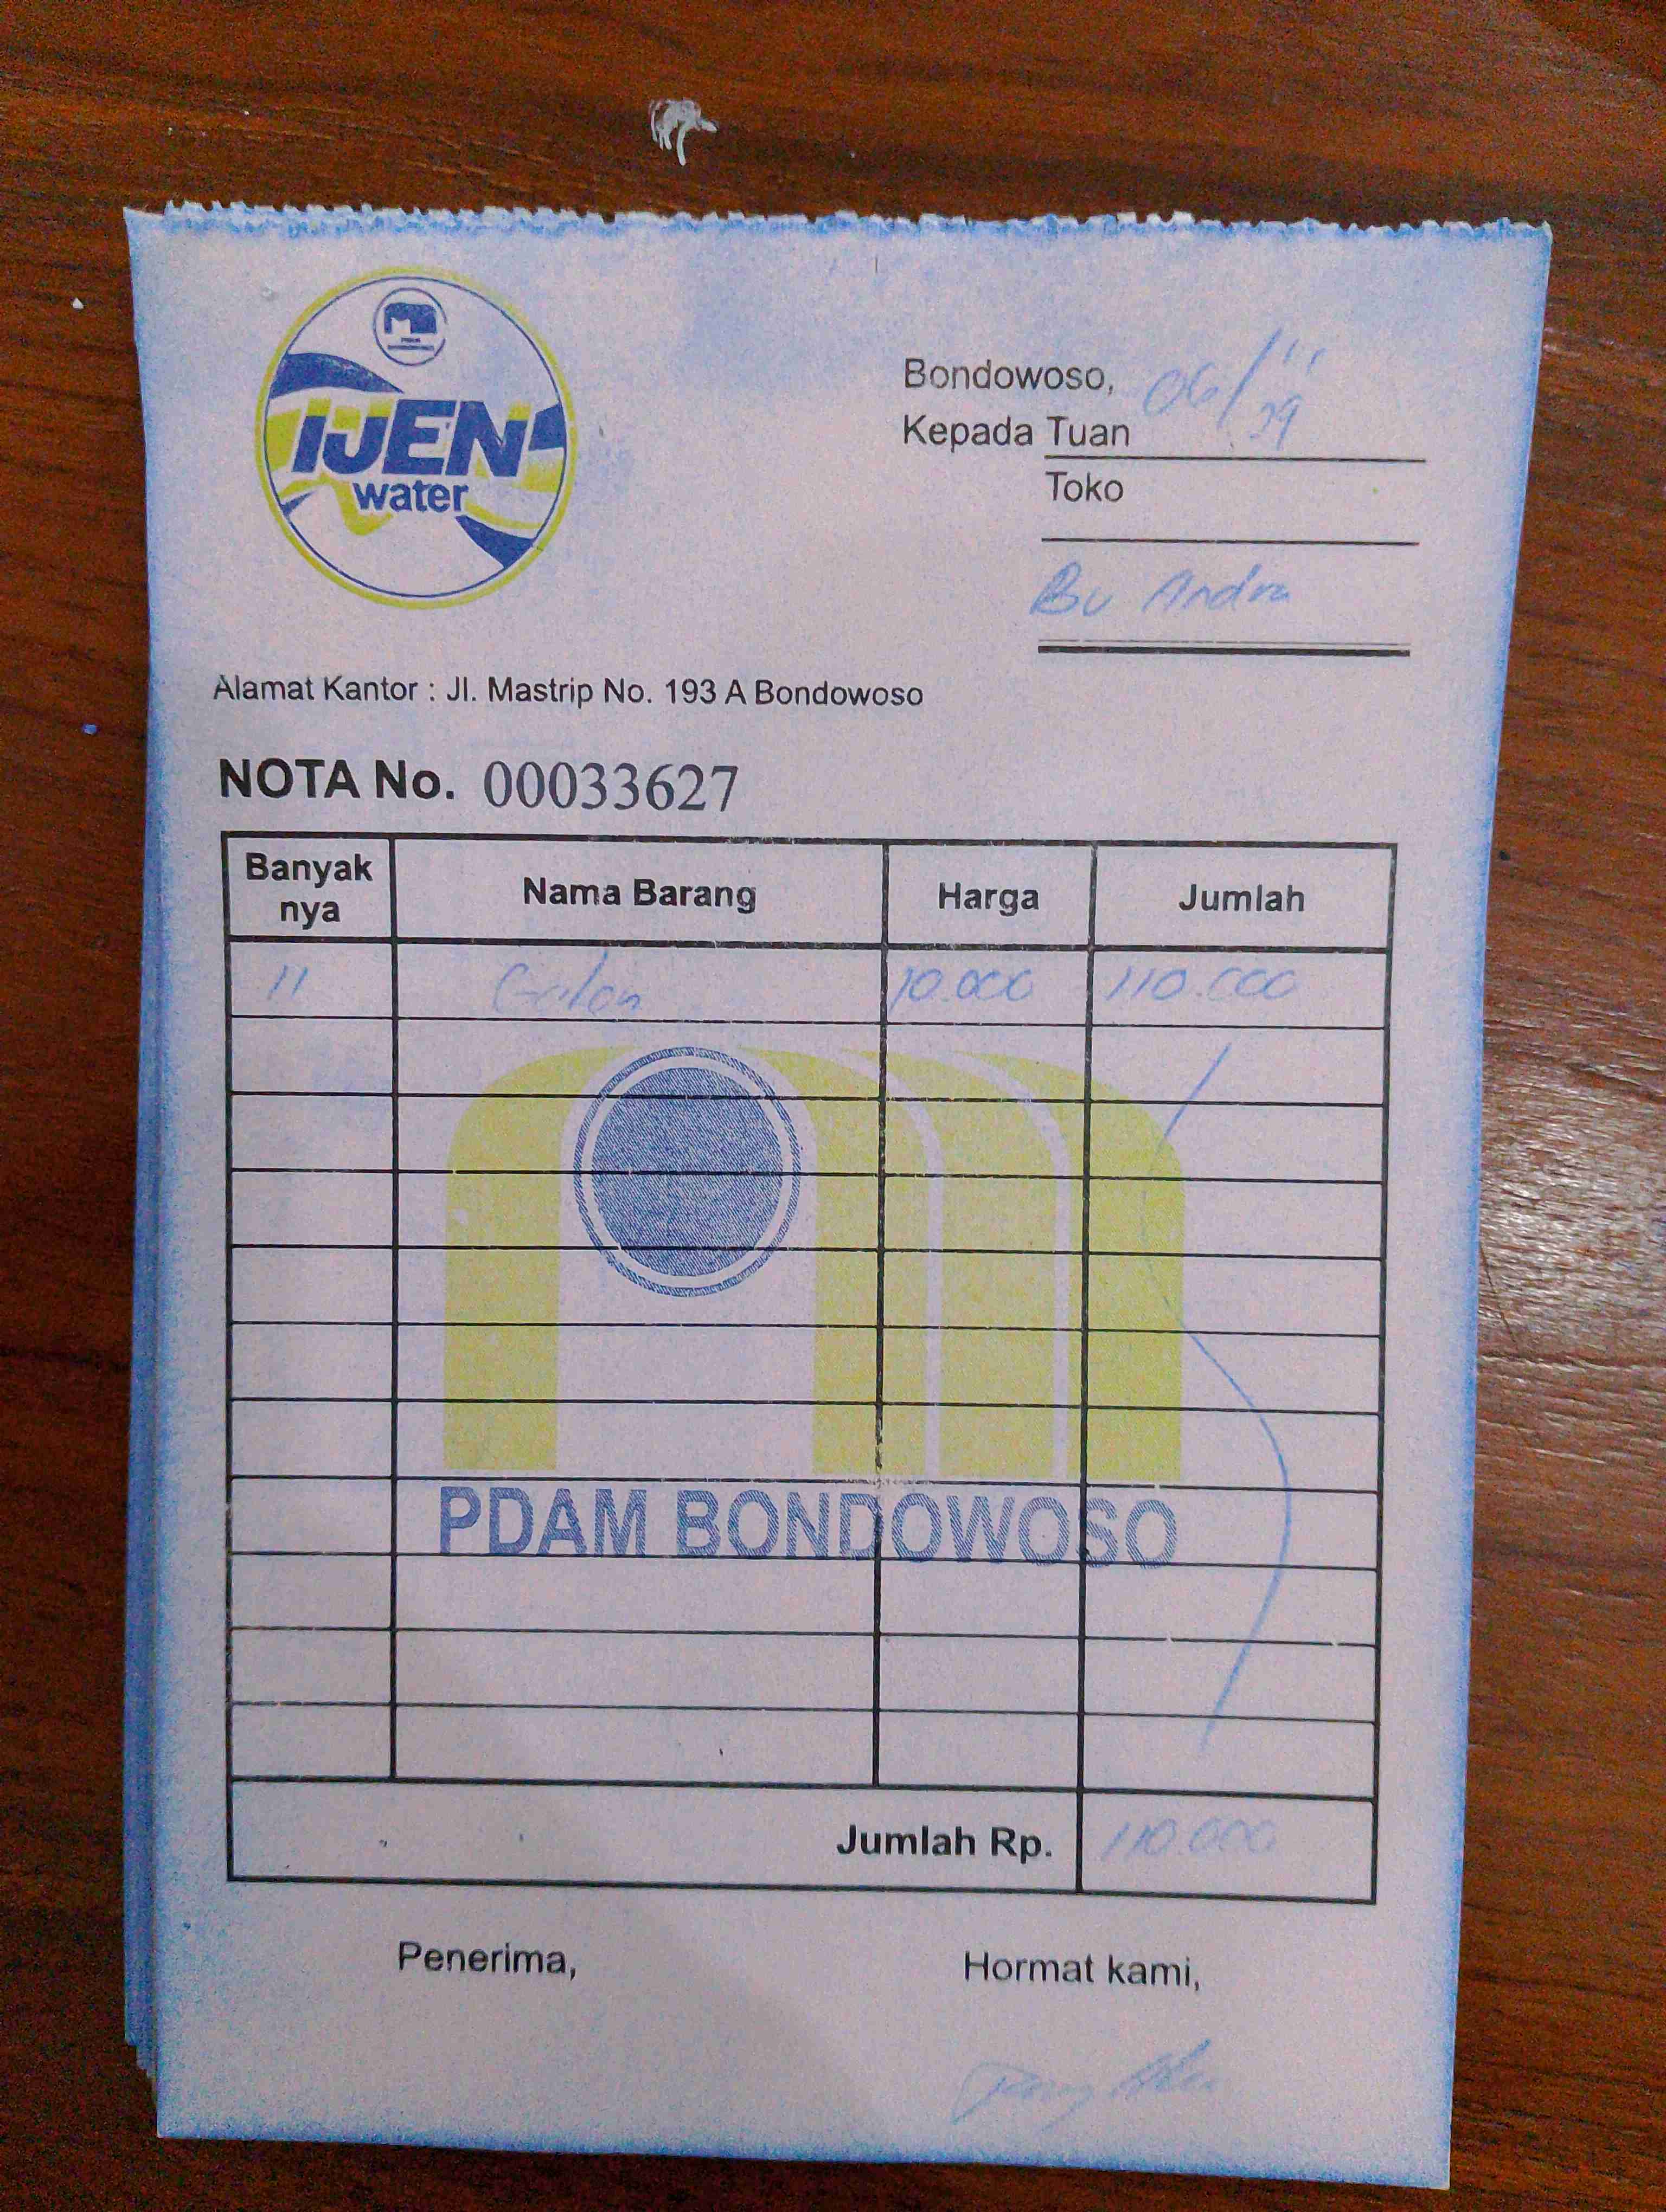 IJEN
water
Bondowoso, 06/11
Kepada Tuan
Toko
Bu Andra
Alamat Kantor : Jl. Mastrip No. 193 A Bondowoso
NOTA No. 00033627
Banyak nya Nama Barang Harga Jumlah
11 Galon 10.000 110.000
PDAM BONDOWOSO
Jumlah Rp. 110.000
Penerima, Hormat kami,